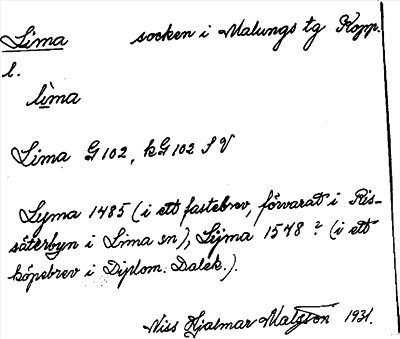 Lima socken i Malungs tg Kopp.
l.
lima
Lima G 102, kG 102 S V
Lyma 1485 (i ett fastebrev, förvarat i Ris-
säterbyn i Lima sn), Lijma 1548? (i ett
köpebrev i Diplom. Dalek.).
Niss Hjalmar Matsson 1931.